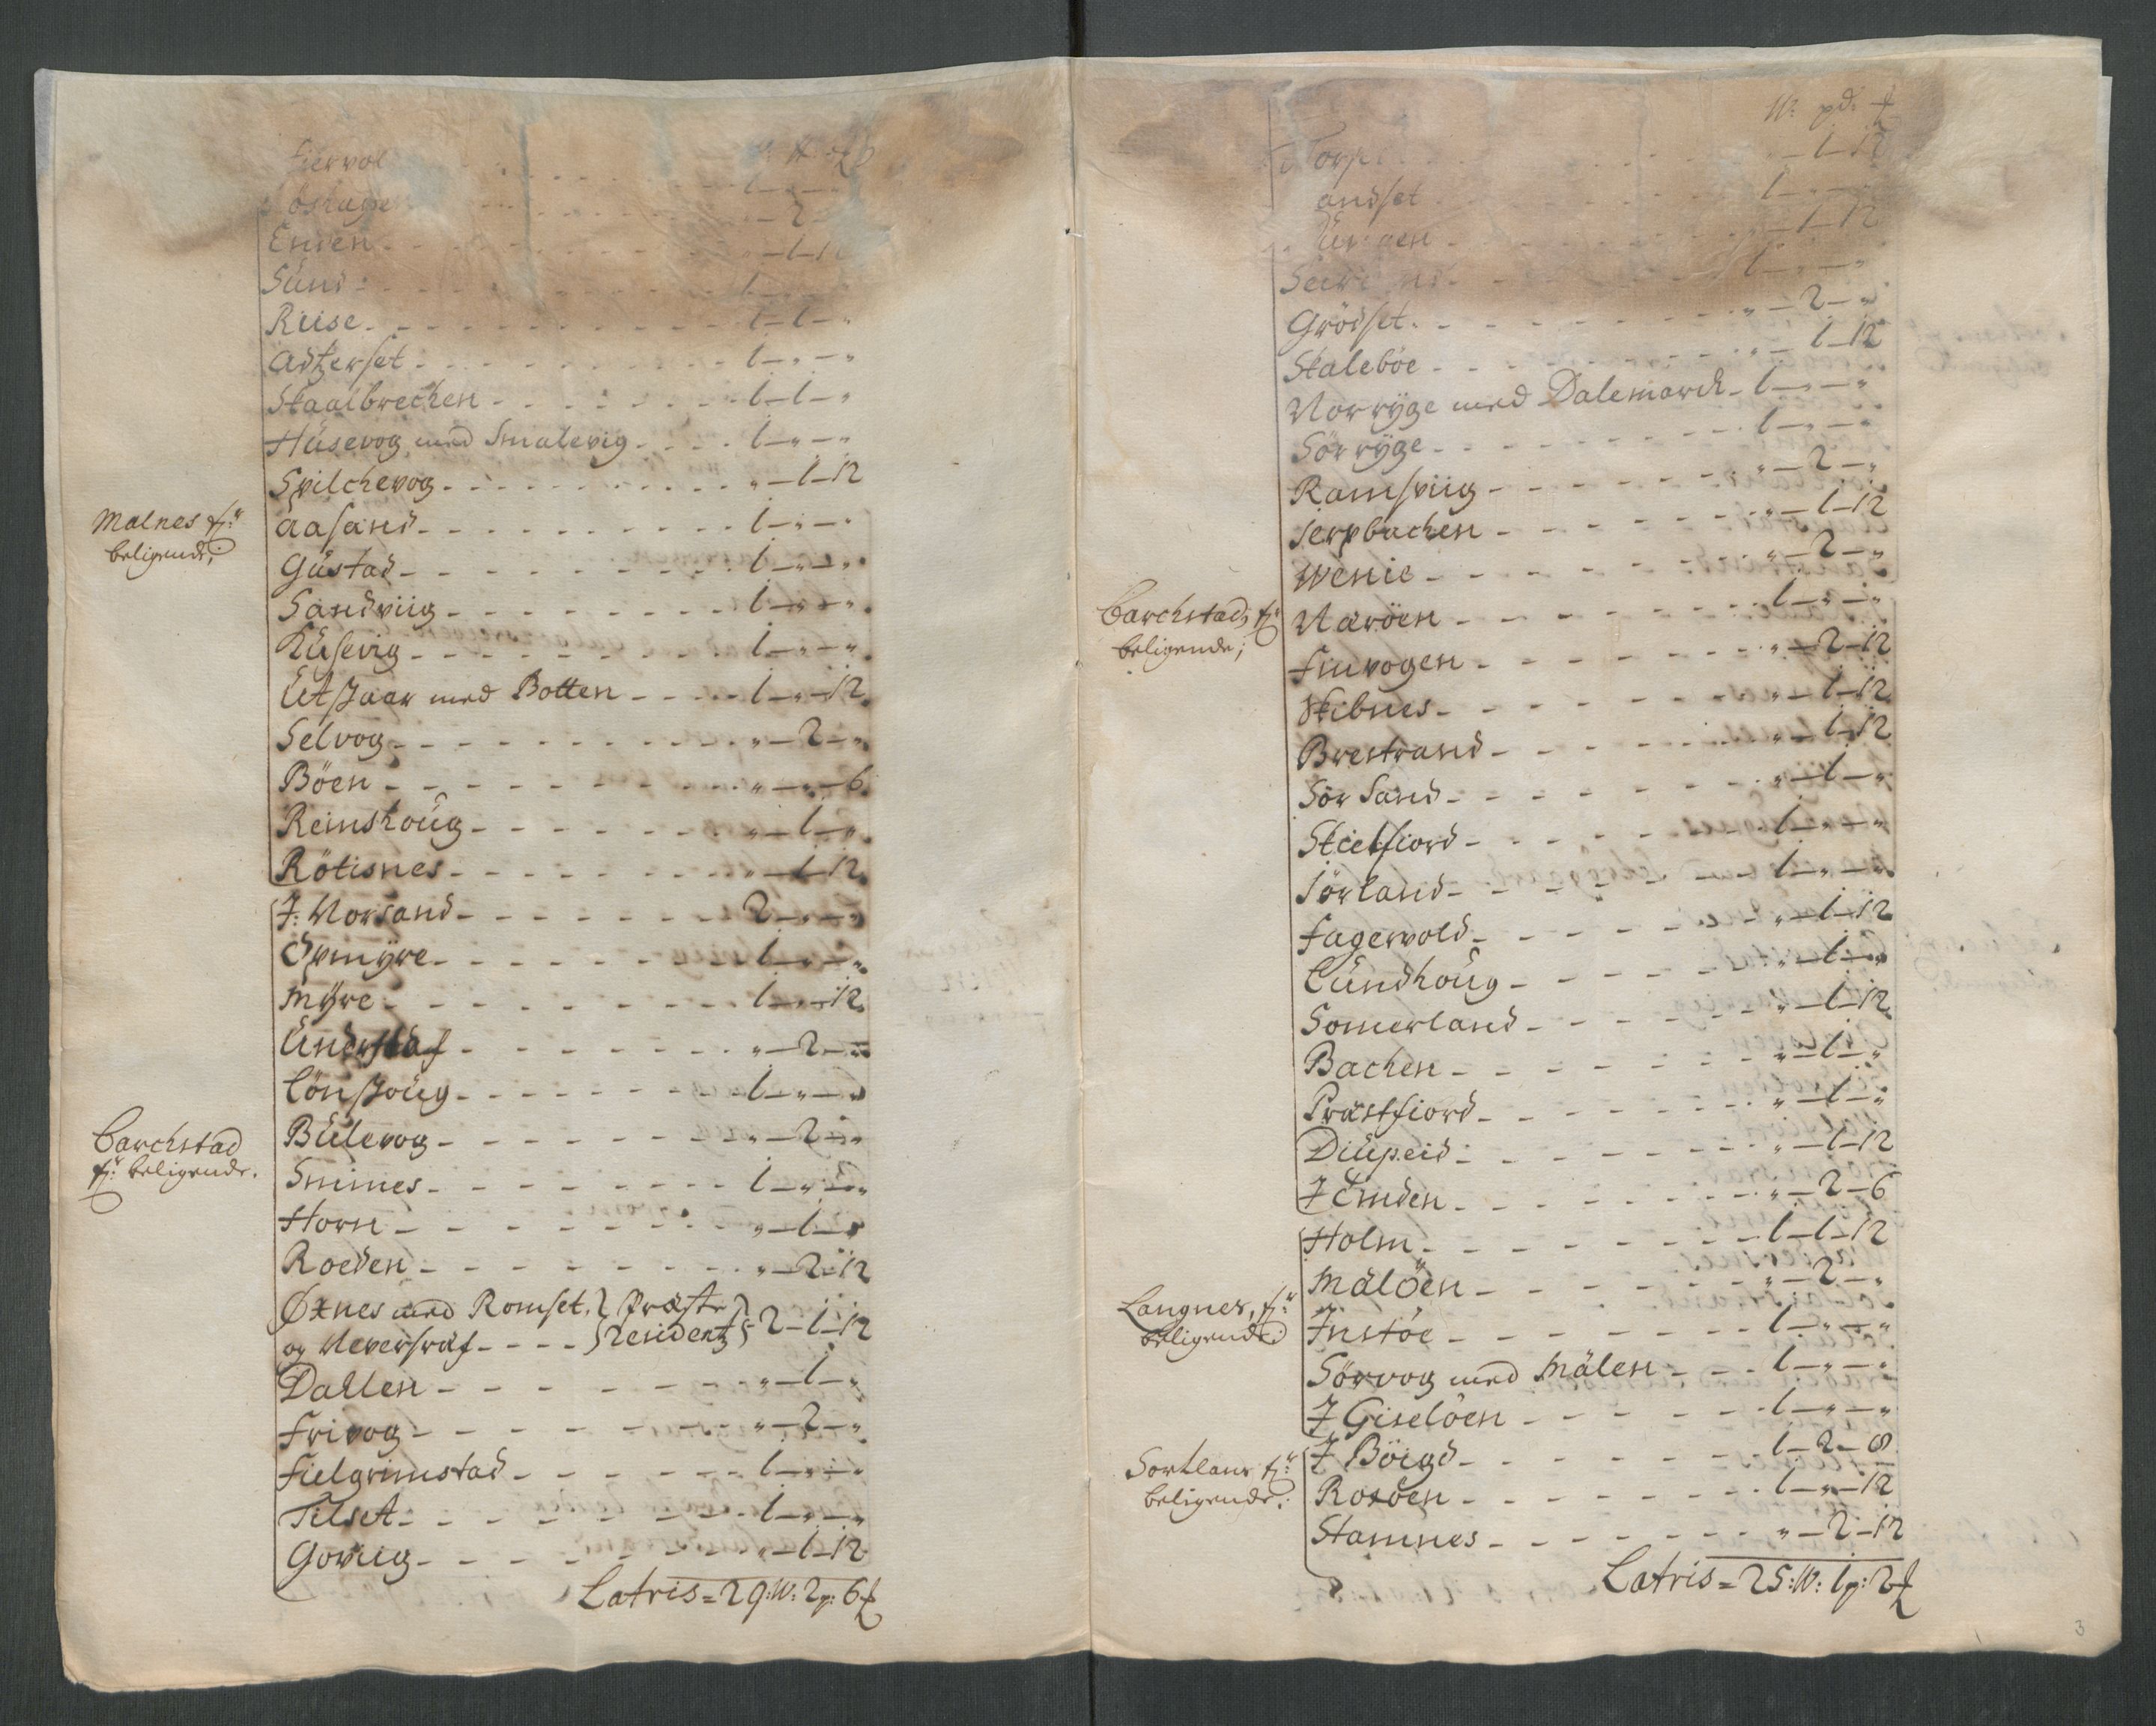 Fiervol
Enden - - - - „ - 1 - 1
Sund - - - - 1
Riise - - - - 1 - 1 - „
Adtzerset - - - - 1 - „ - „
Skaalbrechen - - - - 1 - 1 - „
Husevog med Smalevig - - - - 1 - „ - „
Spilchevog - - - - „ - 1 - 12
Malnes fr:
beligende;
Aasand - - - - 1 - „ - „
Gustad - - - - 1 - „ - „
Sandviig - - - - 1 - „ - „
Kusevig - - - - 1 - „ - „
Utskaar med Botten - - - - 1 - „ - 12
Selvog - - - - „ - 2 - „
Böen - - - - „ - „ - 6
Reinshoug - - - - „ - 1 - „
Rötisnes - - - - „ - 1 - 12
J: Norsand - - - - 2 - „ - „
Opmÿre - - - - 1 - „ - „
Mÿre - - - - 1 - „ - 12
- - - - „ - 2 - „
Lönskoug - - - - 1 - „ - „
Barchstad
fr: beligende.
Bulevog - - - - „ - 2 - „
Smines - - - - 1 - „ - „
Horn - - - - „ - 1 - „
Roeden - - - - „ - 2 - 12
Øxnes med Romset. } Præste
og Neversraf - - - - } Residentz } 2 - 1 - 12
Dallen - - - - „ - 1 - „
Frivog - - - - „ - 2 - „
Fielgrimstad - - - - 1 - „ - „
Tilset - - - - 1 - „ - „
Goviig - - - - „ - 1 - 12
Latris = 29: W: 2p: 6
W: pd:
„ - 1 - 12
andset - - - - 1 - „ - „
- - - - „ - 1 - 12
- - - - 1 - „ - „
Grödset - - - - „ - 2 - „
Skaleböe - - - - „ - 1 - 12
Norrÿge med Dalemarch - 1 - „ - „
Sörrÿge - - - - 1 - „ - „
Ramsviig - - - - „ - 2 - „
Jerpbachen - - - - „ - 1 - 12
Wenie - - - - „ - 2 - „
Barchstads fr:
beligende;
Naröen - - - - 1 - „ - „
Finvogen - - - - „ - 2 - 12
Skibnes - - - - „ - 1 - 12
Brestrand - - - - „ - 1 - 12
Sör Sand - - - - „ - 1 - „
Skielfiord - - - - 1 - „ - „
Sörland - - - - 1 - „ - „
Fagervold - - - - „ - 1 - 12
Lundhoug - - - - „ - 1 - „
Somerland - - - - „ - 1 - 12
Bachen - - - - „ - 1 - „
Præstfiord - - - - „ - 1 - „
Diupeid - - - - „ - 1 - 12
J Emden - - - - „ - 2 - 6
Holm - - - - 1 - 1 - 12
Langnes, fr:
beligende:
Malöen - - - - „ - 2 - „
Instöe - - - - 1 - „ - „
Sörvog med Mälen - - - 1 - „ - „
J Giselöen - - - - 1 - „ - „
Sortlans fr:
beligende:
J Böigd - - - - 1 - 2 - 8
Rosöen - - - - 1 - „ - 12
Stamnes - - - - „ - 2 - 12
Latris = 25: W: 1p: 2
3